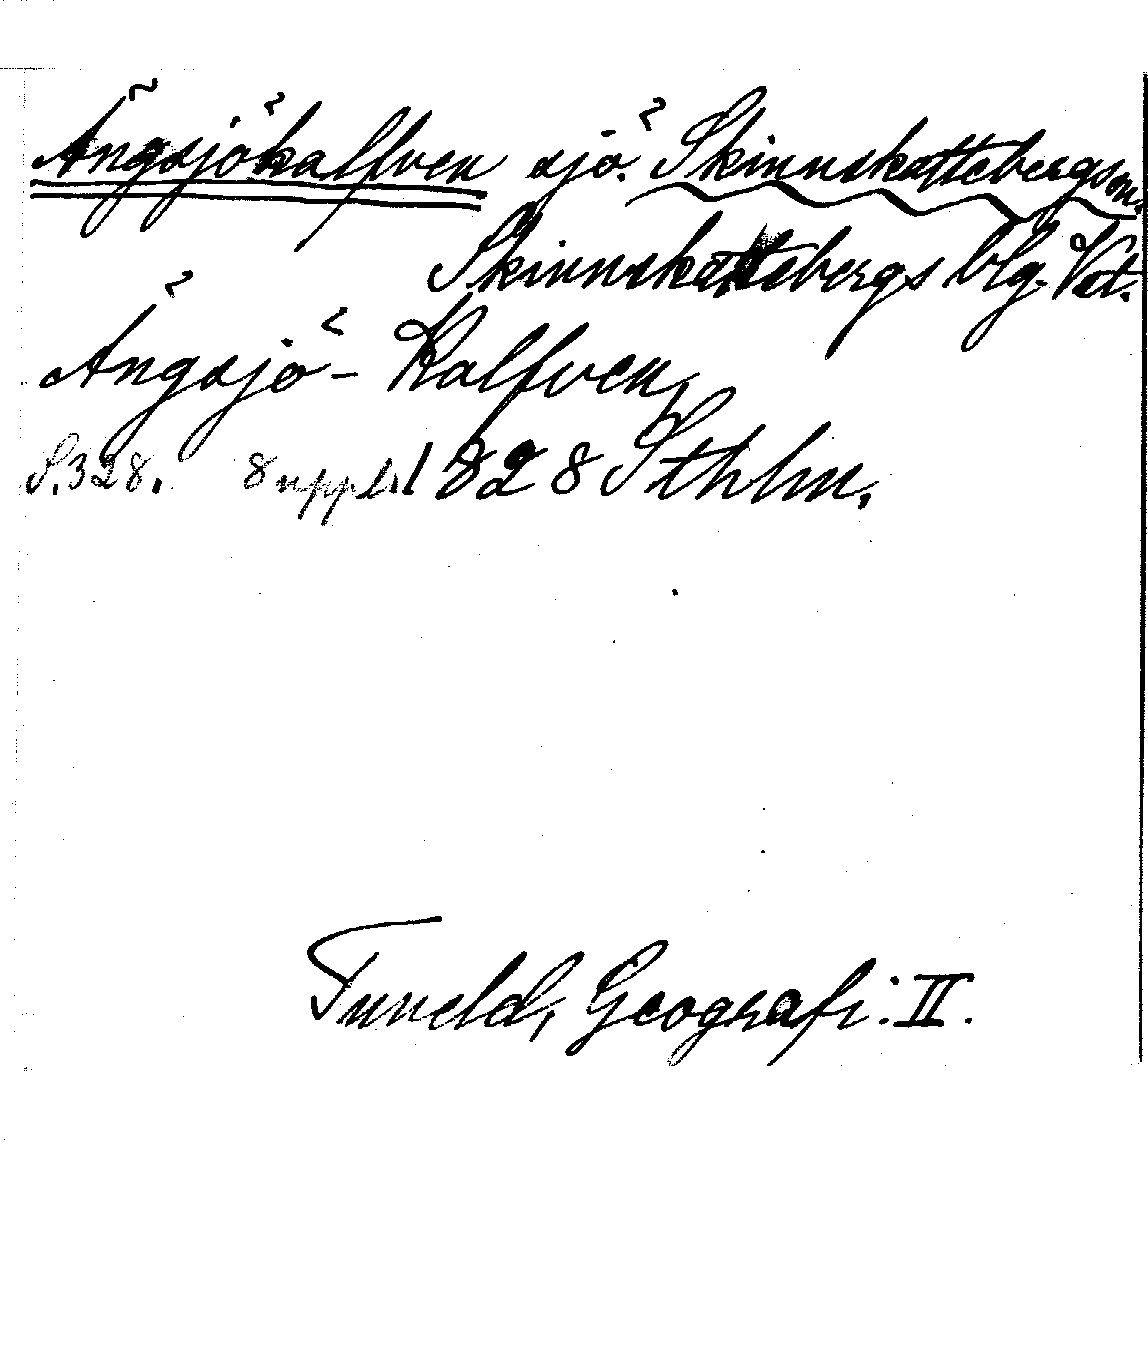 Ängsjökalfven sjö. Skinnskattebergs sn.
Skinnskattebergs blg. Vst.
Ängsjö-Kalfven,
S. 328. 8 uppl. 1828 Sthlm.
Tuneld, Geografi. II.